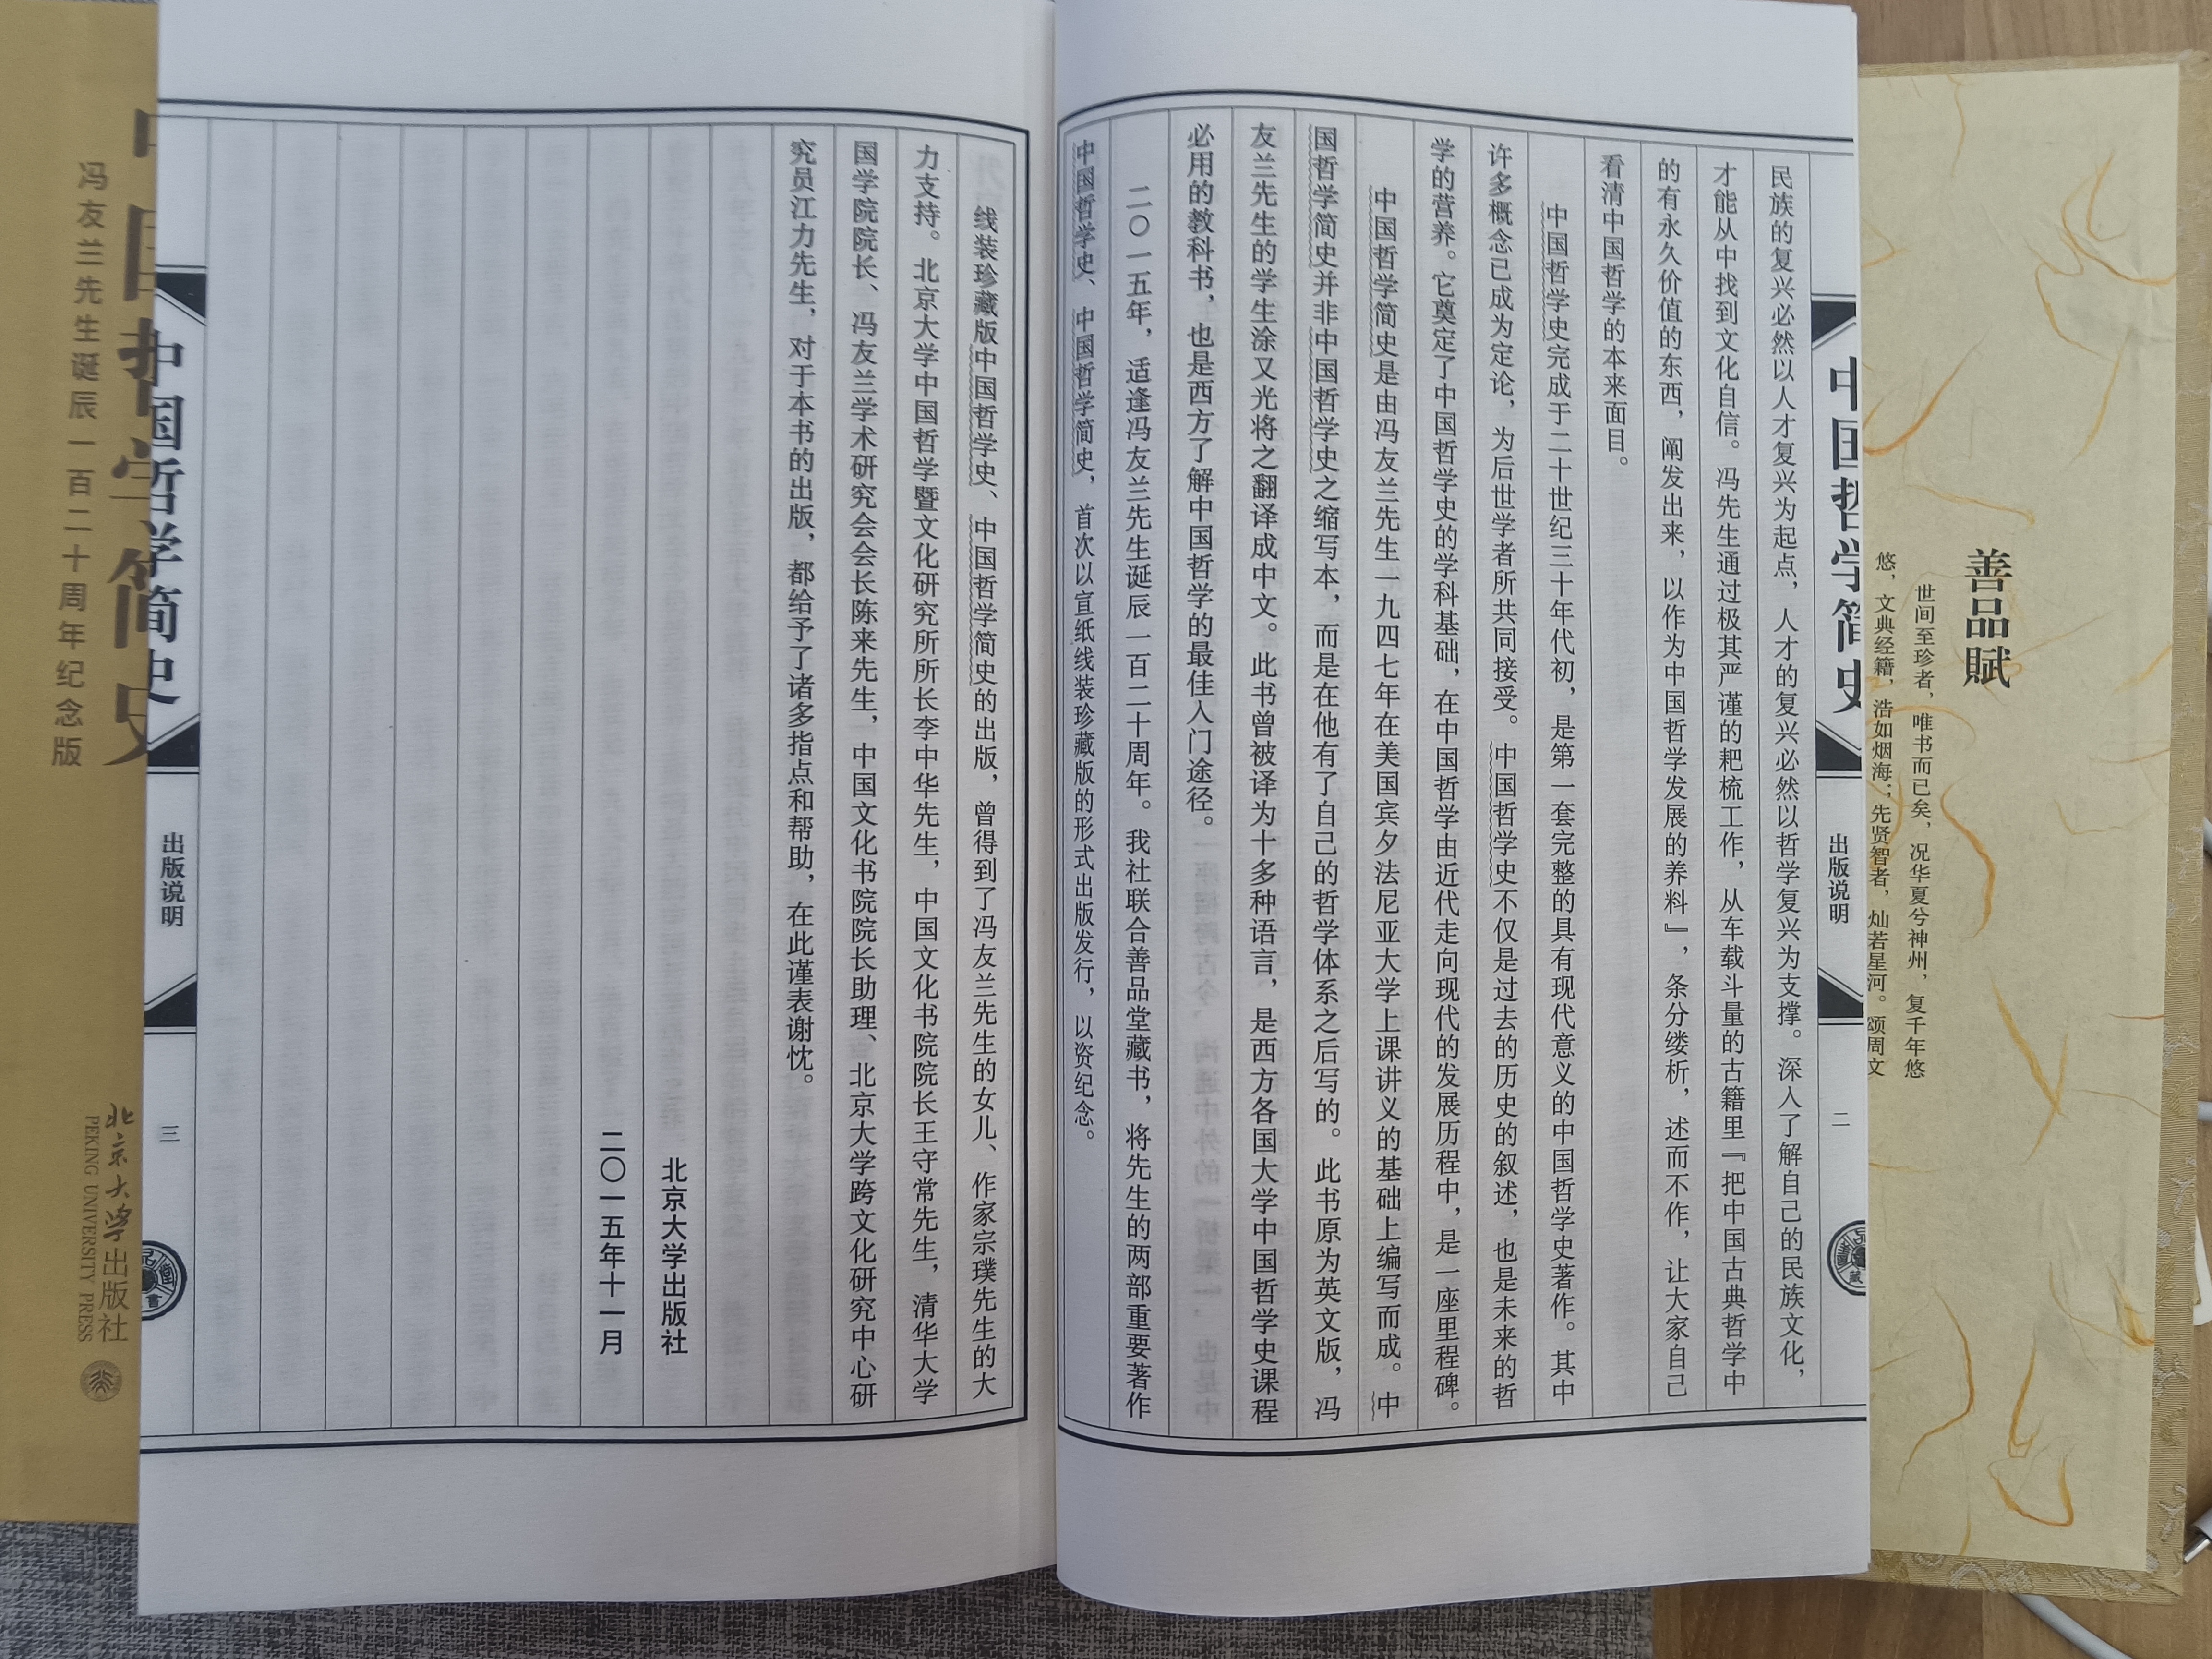 民族的复兴必然以人才复兴为起点，人才的复兴必然以哲学复兴为支撑。深入了解自己的民族文化，
才能从中找到文化自信。冯先生通过极其严谨的耙梳工作，从车载斗量的古籍里『把中国古典哲学中
的有永久价值的东西，阐发出来，以作为中国哲学发展的养料』，条分缕析，述而不作，让大家自己
看清中国哲学的本来面目。
中国哲学史完成于二十世纪三十年代初，是第一套完整的具有现代意义的中国哲学史著作。其中
许多概念已成为定论，为后世学者所共同接受。中国哲学史不仅是过去的历史的叙述，也是未来的哲
学的营养。它奠定了中国哲学史的学科基础，在中国哲学由近代走向现代的发展历程中，是一座里程碑。
中国哲学简史是由冯友兰先生一九四七年在美国宾夕法尼亚大学上课讲义的基础上编写而成。中
国哲学简史并非中国哲学史之缩写本，而是在他有了自己的哲学体系之后写的。此书原为英文版，冯
友兰先生的学生涂又光将之翻译成中文。此书曾被译为十多种语言，是西方各国大学中国哲学史课程
必用的教科书，也是西方了解中国哲学的最佳入门途径。
二〇一五年，适逢冯友兰先生诞辰一百二十周年。我社联合善品堂藏书，将先生的两部重要著作
中国哲学史、中国哲学简史，首次以宣纸线装珍藏版的形式出版发行，以资纪念。
线装珍藏版中国哲学史、中国哲学简史的出版，曾得到了冯友兰先生的女儿、作家宗璞先生的大
力支持。北京大学中国哲学暨文化研究所所长李中华先生，中国文化书院院长王守常先生，清华大学
国学院院长、冯友兰学术研究会会长陈来先生，中国文化书院院长助理、北京大学跨文化研究中心研
究员江力先生，对于本书的出版，都给予了诸多指点和帮助，在此谨表谢忱。
北京大学出版社
二〇一五年十一月
中国哲学简史
出版说明
二
中国哲学简史
出版说明
三
善品賦
世间至珍者，唯书而已矣，况华夏兮神州，复千年悠
悠，文典经籍，浩如烟海；先贤智者，灿若星河。颂周文
冯友兰先生诞辰一百二十周年纪念版
北京大学出版社
PEKING UNIVERSITY PRESS